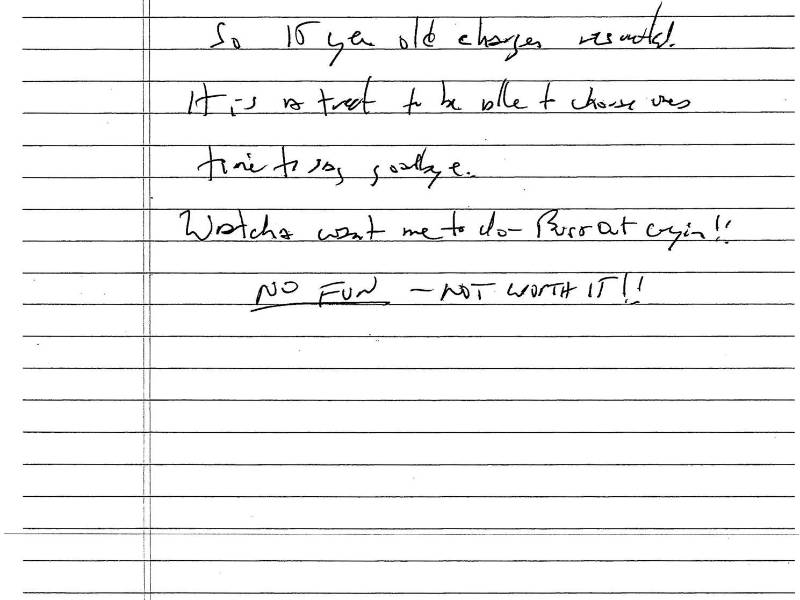 So 15 year old charges resulted.
It is a treat to be able to choose ones
time to say goodbye.
Watcha want me to do - Burst out cryin!!
NO FUN - NOT WORTH IT!!